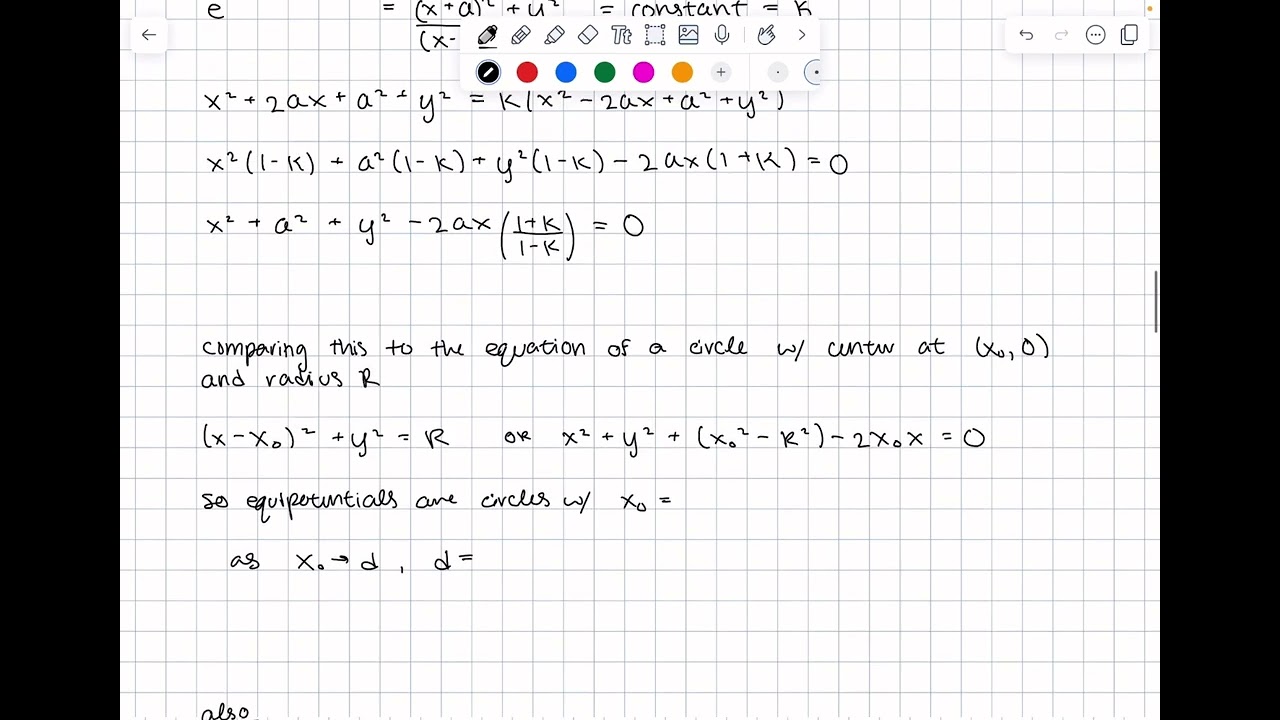 e = (x+a)² + y² = constant = K
(x-
x² + 2ax + a² + y² = K(x² - 2ax + a² + y²)
x²(1-K) + a²(1-K) + y²(1-K) - 2ax(1+K) = 0
x² + a² + y² - 2ax (1+K / 1-K) = 0
comparing this to the equation of a circle w/ center at (x₀, 0)
and radius R
(x-x₀)² + y² = R or x² + y² + (x₀² - R²) - 2x₀x = 0
so equipotentials are circles w/ x₀ =
as x₀ → d , d =
also